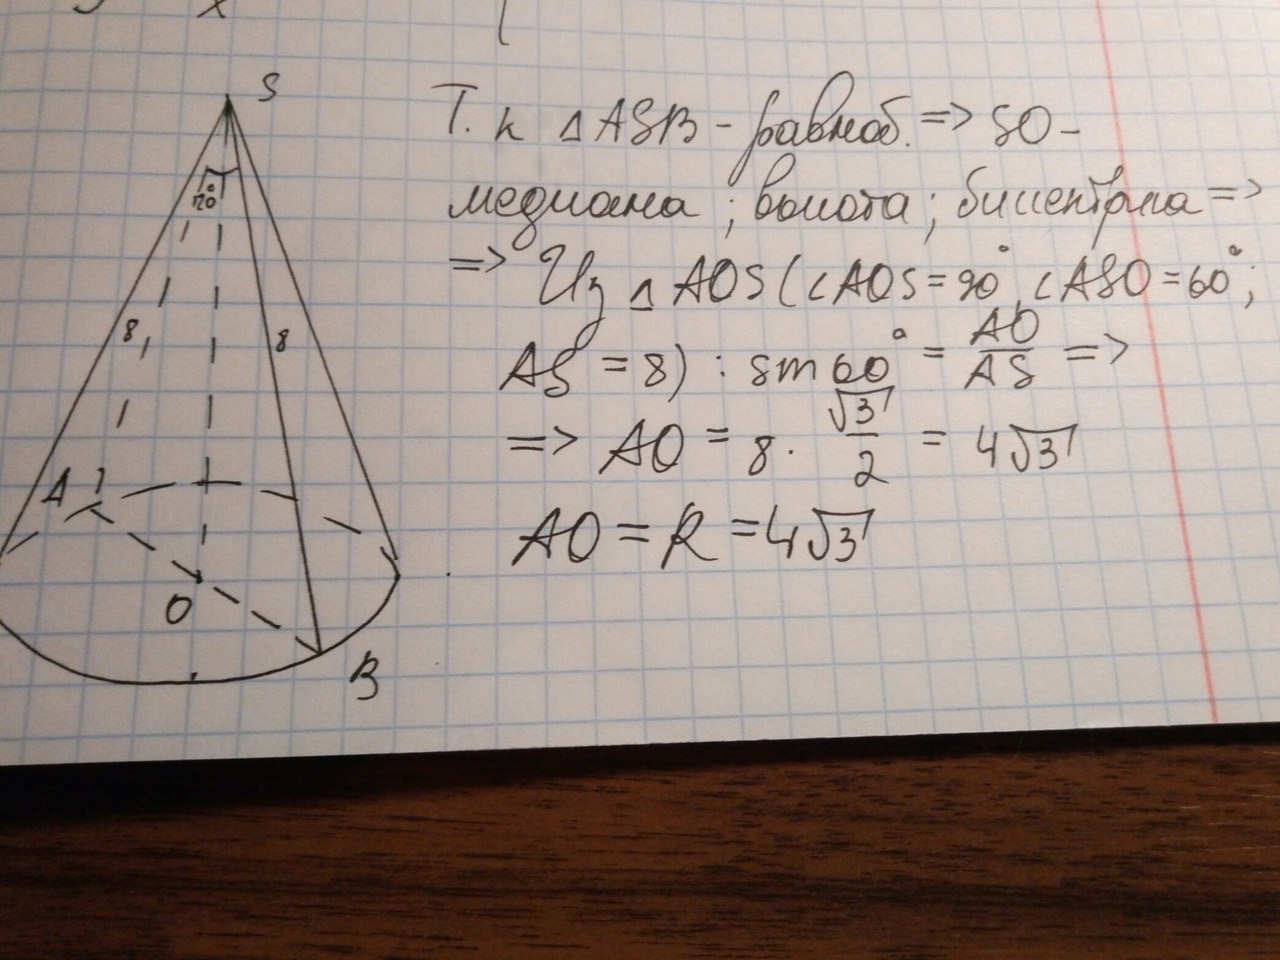 S
120°
8
8
A
O
B
Т. к △ASB - равноб. => SO -
медиана ; высота ; биссектриса =>
=> Из △AOS (∠AOS = 90°, ∠ASO = 60°;
AS = 8) : sin 60° = AO/AS =>
=> AO = 8 · √3/2 = 4√3
AO = R = 4√3